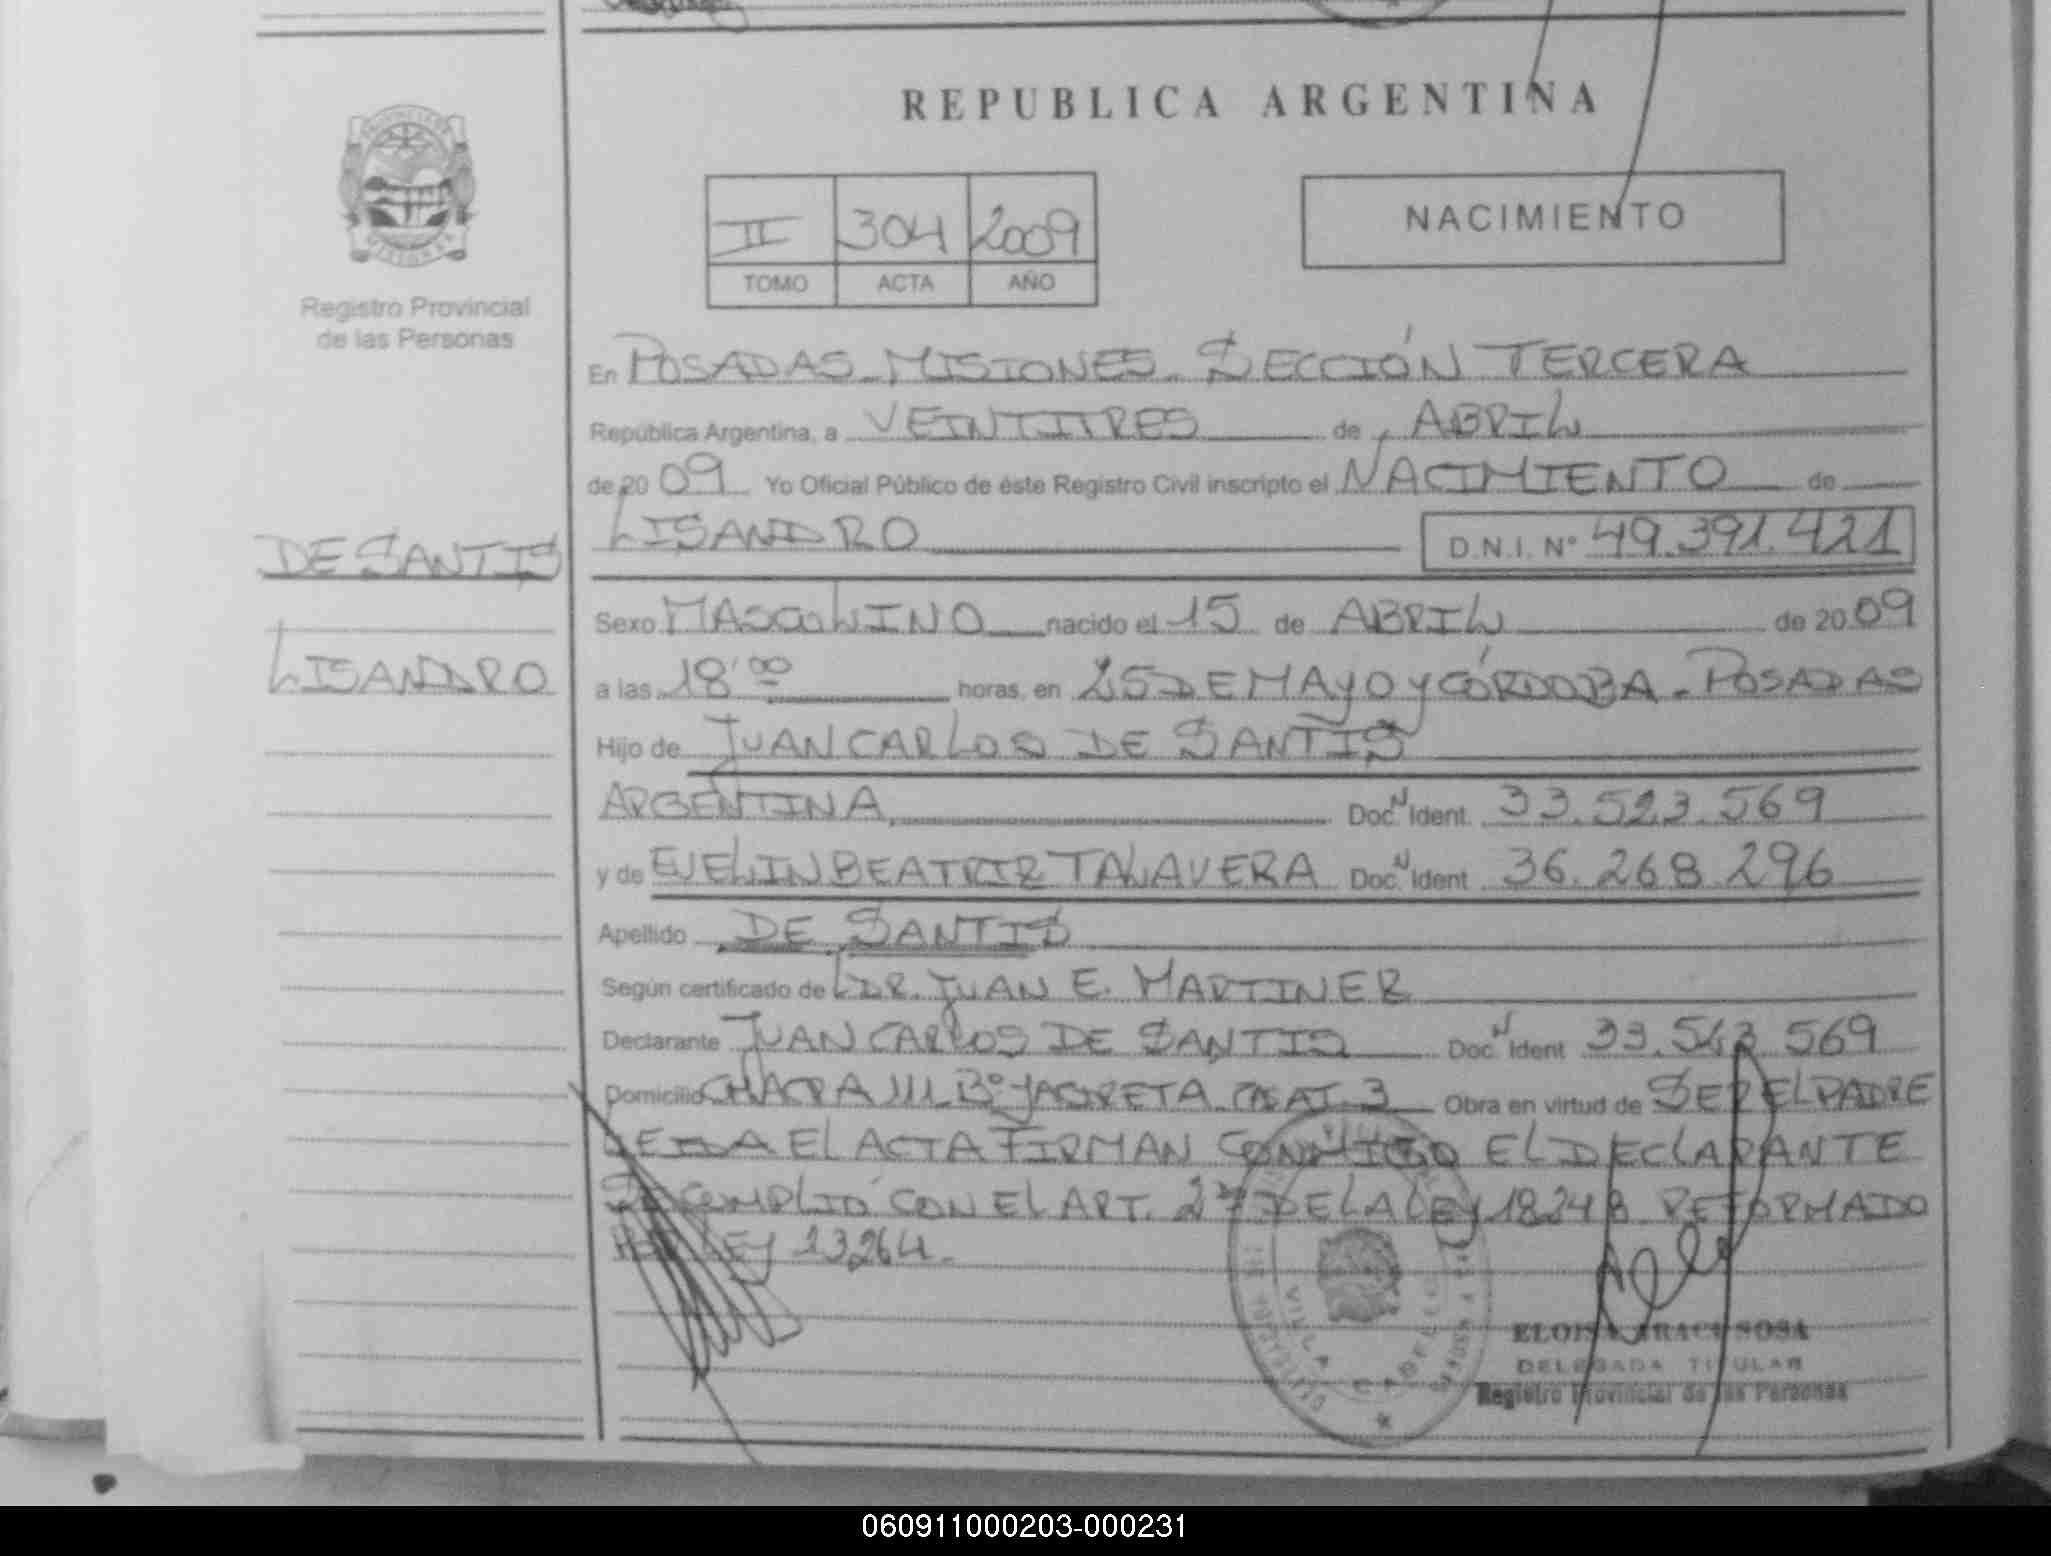 REPUBLICA ARGENTINA
II 304 2009
TOMO ACTA AÑO
NACIMIENTO
Registro Provincial
de las Personas
DE SANTIS
LISANDRO
En POSADAS - MISIONES - SECCIÓN TERCERA
República Argentina, a VEINTITRES de ABRIL
de 2009 Yo Oficial Público de éste Registro Civil inscripto el NACIMIENTO de
LISANDRO D.N.I. Nº 49.391.421
Sexo MASCULINO nacido el 15 de ABRIL de 2009
a las 18:00 horas, en 25 DE MAYO y CÓRDOBA - POSADAS
Hijo de JUAN CARLOS DE SANTIS
ARGENTINA Doc. N Ident. 33.523.569
y de EVELIN BEATRIZ TALAVERA Doc. N Ident 36.268.296
Apellido DE SANTIS
Según certificado de DR. JUAN E. MARTINEZ
Declarante JUAN CARLOS DE SANTIS Doc. N Ident 33.523.569
Domicilio CHACRA Bº YACIRETA 3 Obra en virtud de SER EL PADRE
LEIDA EL ACTA FIRMAN CONMIGO EL DECLARANTE
SE CUMPLIÓ CON EL ART. 27 DE LA LEY 18248 REFORMADO
LEY 13264.
VILLA CABELLO
MISIONES
ELOISA ARACI SOSA
DELEGADA TITULAR
Registro Provincial de las Personas
060911000203-000231